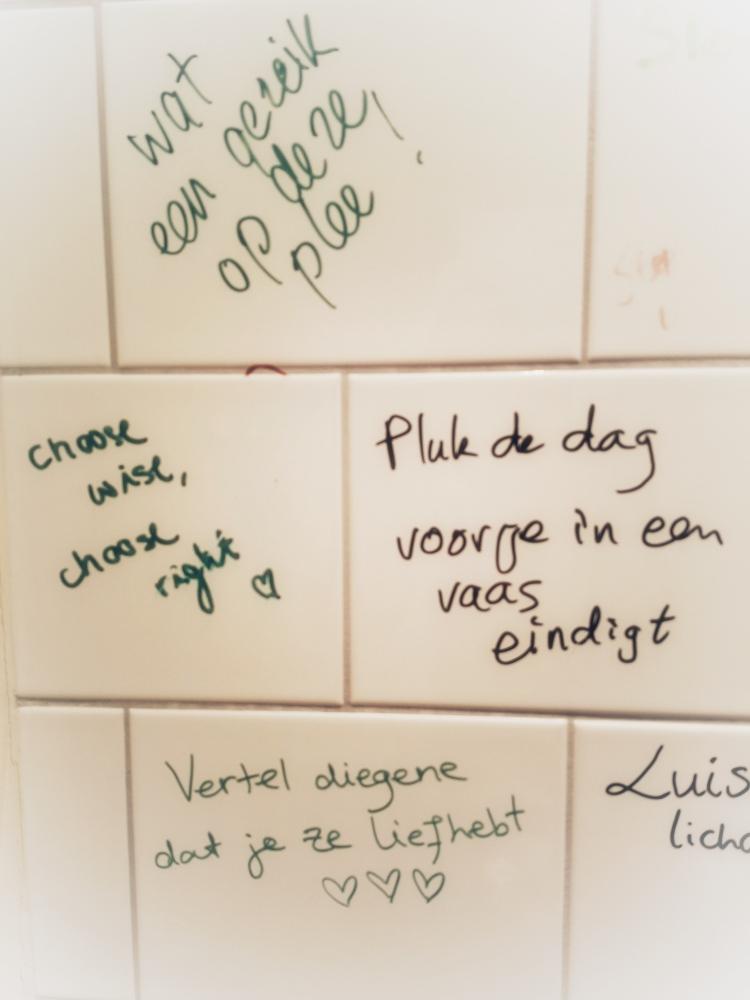 wat
een gezeik
op deze
plee!
choose
wise,
choose
right
Pluk de dag
voor ge in een
vaas
eindigt
Vertel diegene
dat je ze liefhebt
Luis
licha